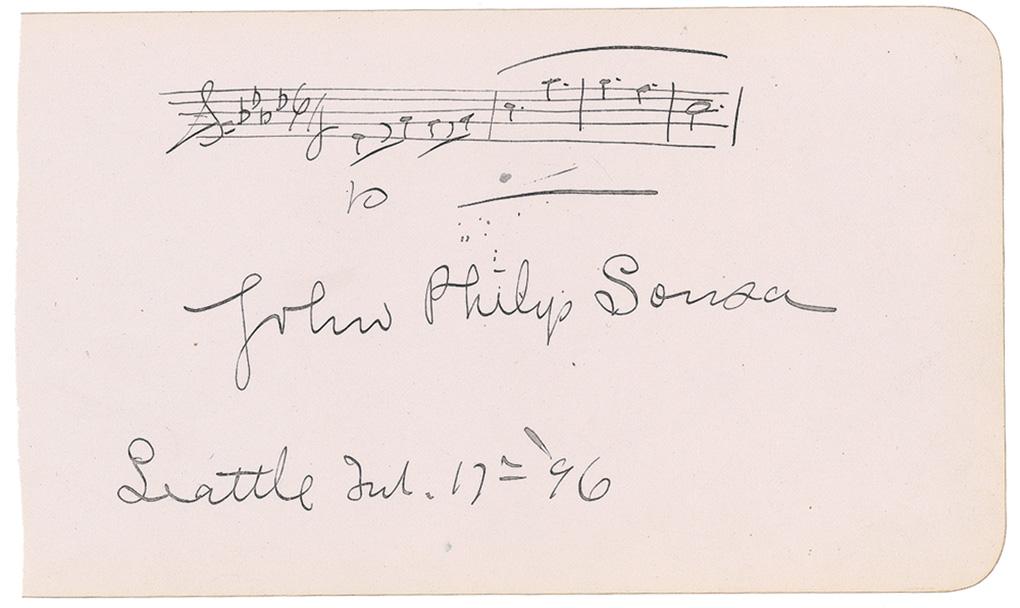 John Philip Sousa
Seattle Feb. 17th '96